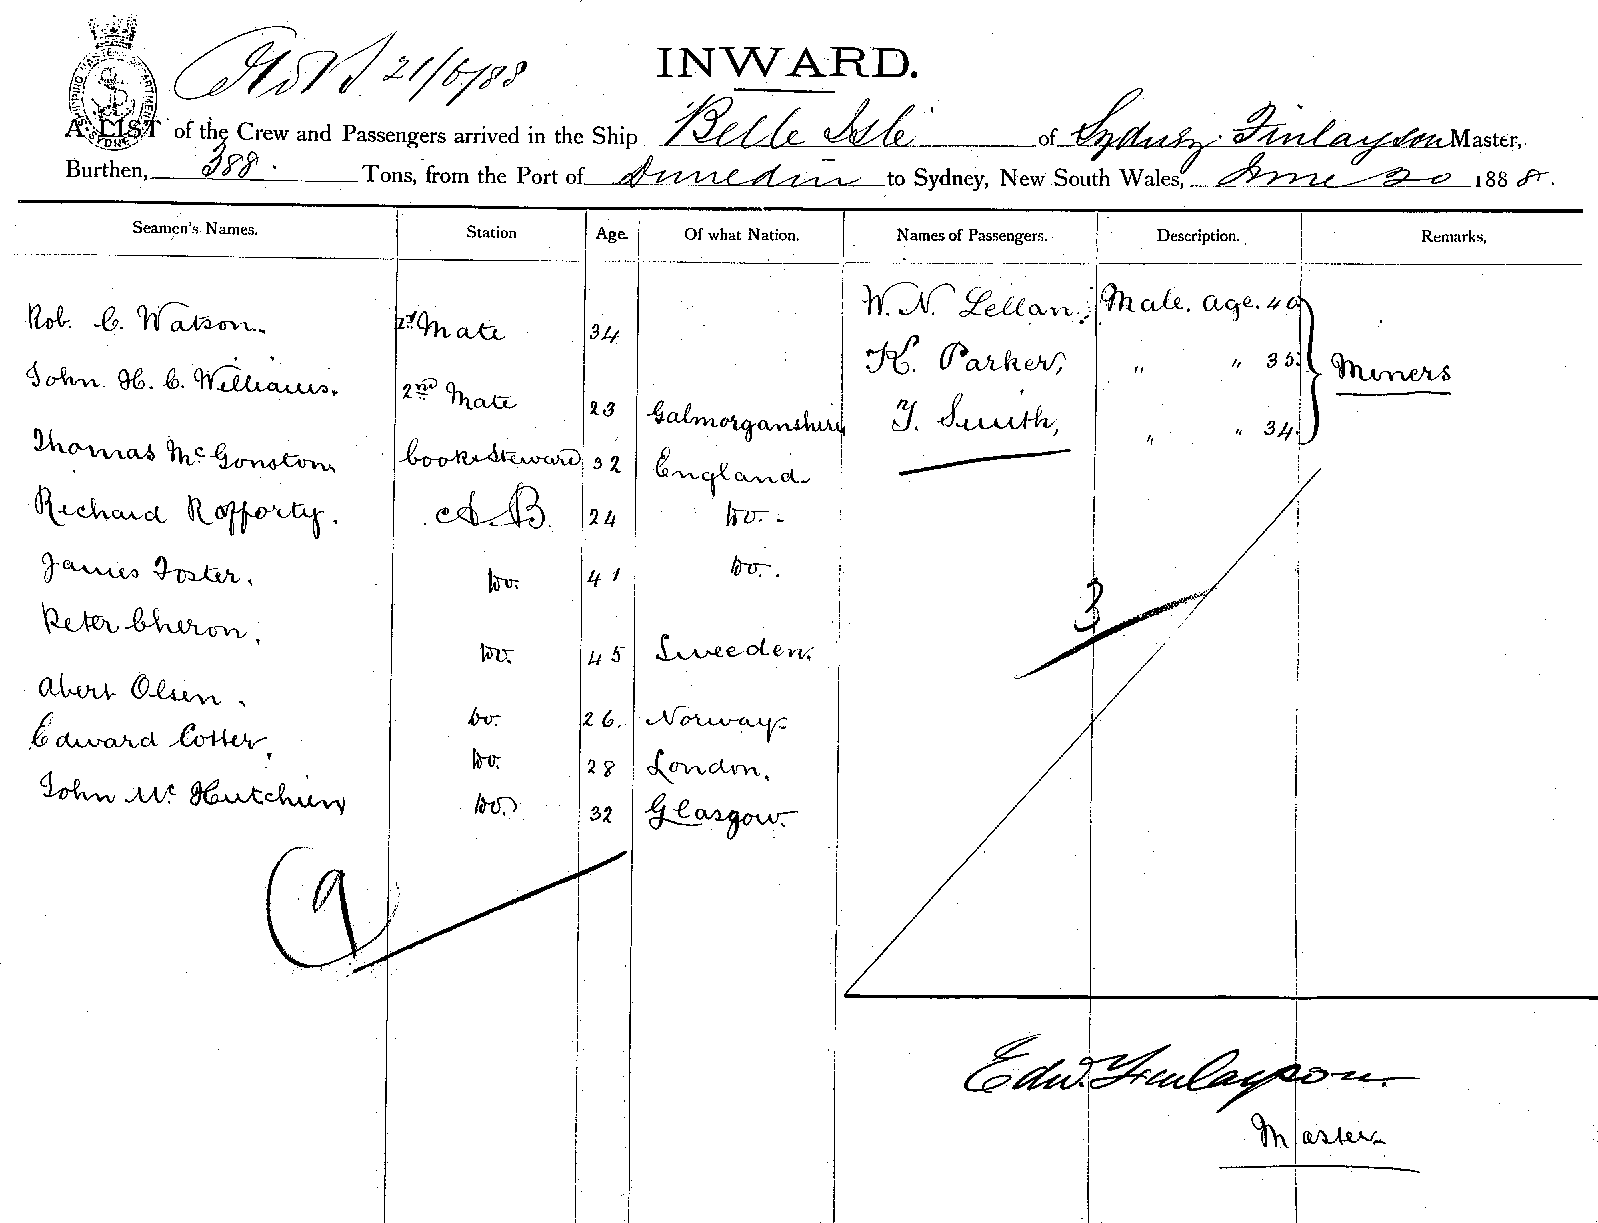 21/6/88
INWARD.
A LIST of the Crew and Passengers arrived in the Ship Belle Isle of Sydney. Finlayson Master,
Burthen, 388. Tons, from the Port of Dunedin to Sydney, New South Wales, June 20 1888.
Seamen's Names. Station Age. Of what Nation. Names of Passengers. Description. Remarks,
Rob. C. Watson. 1st Mate 34 W. N. Lellan, Male. age. 40
John H. C. Williams. 2nd Mate 23 Galmorganshire K. Parker, " " 35. Miners
Thomas Mc Gonston Cook & Steward 32 England. T. Smith, " " 34.
Richard Rofforty. A.B. 24 Do.
James Foster. Do. 41 Do.
Peter Cheron. Do. 45 Sweeden. 3
Abert Olsen. Do. 26. Norway
Edward Cotter. Do. 28 London.
John Mc Hutchien Do. 32 Glasgow.
9
Edw. Finlayson.
Master